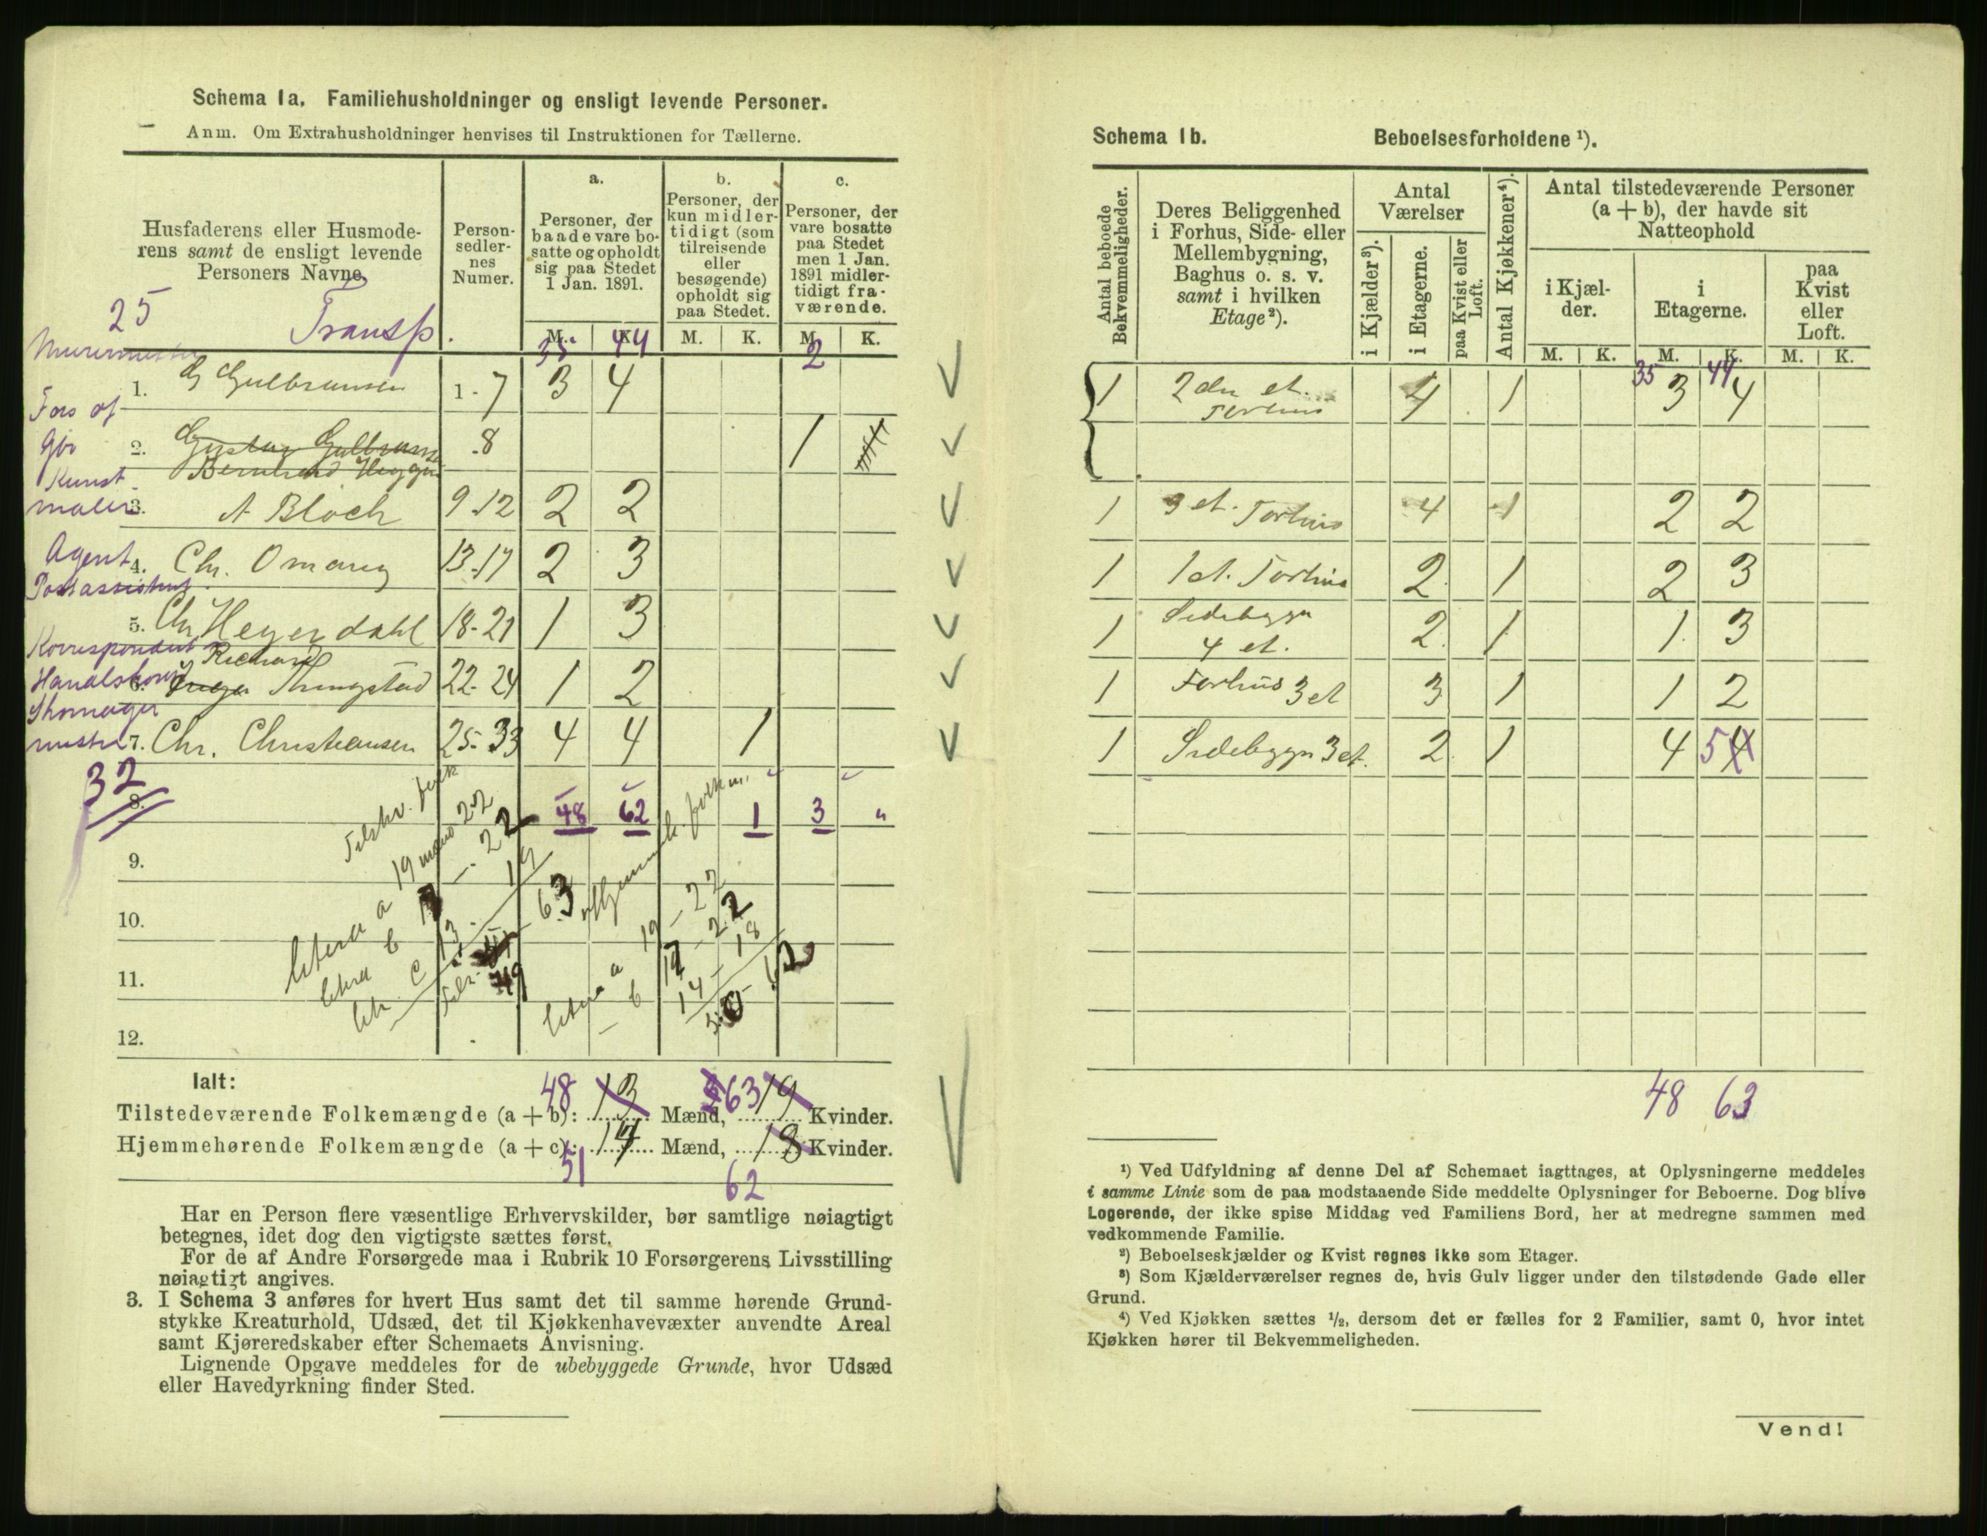 Schema 1a. Familiehusholdninger og ensligt levende Personer.
Anm. Om Extrahusholdninger henvises til Instruktionen for Tællerne.
Husfaderens eller Husmoderens samt de ensligt levende Personers Navne.
Personsedlernes Numer.
a. Personer, der baade vare bosatte og opholdt sig paa Stedet 1 Jan. 1891.
b. Personer, der kun midlertidigt (som tilreisende eller besøgende) opholdt sig paa Stedet.
c. Personer, der vare bosatte paa Stedet men 1 Jan. 1891 midlertidigt fraværende.
M. K. M. K. M. K.
25 Transp. 35 44 2
Murermester
1. G Gulbransen 1-7 3 4
Fors af
2. Gustav Gulbransen 8 1
Bernhard
Kunstmaler
3. A Bloch 9-12 2 2
Agent
4. Chr. Omang 13-17 2 3
Postassistent
5. Chr Heyerdahl 18-21 1 3
Korrespondent
Richard
6. Inga Thingstad 22-24 1 2
Skomagermester
7. Chr. Christiansen 25-33 4 4 1
32
8. 48 62 1 3 "
9.
10.
11.
12.
Tilstv. folk
litera a 19 mand 22
litera b
litr. c 13
63
Hjemmeh. folkm.
litera a 19 - 22
b 17 - 22
14 - 18
62
Ialt:
Tilstedeværende Folkemængde (a + b): 48 13 Mænd, 63 19 Kvinder.
Hjemmehørende Folkemængde (a + c): 14 Mænd, 18 Kvinder.
51 62
Har en Person flere væsentlige Erhvervskilder, bør samtlige nøiagtigt
betegnes, idet dog den vigtigste sættes først.
For de af Andre Forsørgede maa i Rubrik 10 Forsørgerens Livsstilling
nøiagtigt angives.
3. I Schema 3 anføres for hvert Hus samt det til samme hørende Grund-
stykke Kreaturhold, Udsæd, det til Kjøkkenhavevæxter anvendte Areal
samt Kjøreredskaber efter Schemaets Anvisning.
Lignende Opgave meddeles for de ubebyggede Grunde, hvor Udsæd
eller Havedyrkning finder Sted.
Schema 1b. Beboelsesforholdene ¹).
Antal beboede Bekvemmeligheder.
Deres Beliggenhed i Forhus, Side- eller Mellembygning, Baghus o. s. v. samt i hvilken Etage²).
Antal Værelser
i Kjælder³).
i Etagerne.
paa Kvist eller Loft.
Antal Kjøkkener⁴).
Antal tilstedeværende Personer (a + b), der havde sit Natteophold
i Kjælder.
i Etagerne.
paa Kvist eller Loft.
M. K. M. K. M. K.
35 44
1 2den et. Forhus 4 1 3 4
1 3 et. Forhus 4 1 2 2
1 1 et. Forhus 2 1 2 3
1 Sidebygn 4 et. 2 1 1 3
1 Forhus 3 et 3 1 1 2
1 Sidebygn 3 et. 2 1 4 5 4
48 63
¹) Ved Udfyldning af denne Del af Schemaet iagttages, at Oplysningerne meddeles
i samme Linie som de paa modstaaende Side meddelte Oplysninger for Beboerne. Dog blive
Logerende, der ikke spise Middag ved Familiens Bord, her at medregne sammen med
vedkommende Familie.
²) Beboelseskjælder og Kvist regnes ikke som Etager.
³) Som Kjælderværelser regnes de, hvis Gulv ligger under den tilstødende Gade eller
Grund.
⁴) Ved Kjøkken sættes ½, dersom det er fælles for 2 Familier, samt 0, hvor intet
Kjøkken hører til Bekvemmeligheden.
Vend!